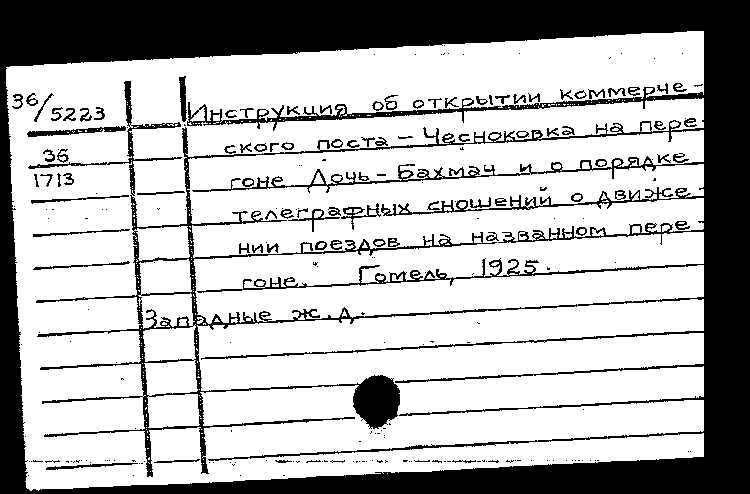 36/5223 Инструкция об открытии коммерче-
ского поста - Чесноковка на пере-
36
1713
гоне Дочь - Бахмач и о порядке
телеграфных сношений о движе-
нии поездов на названном пере-
гоне. Гомель, 1925.
Западные ж.д.